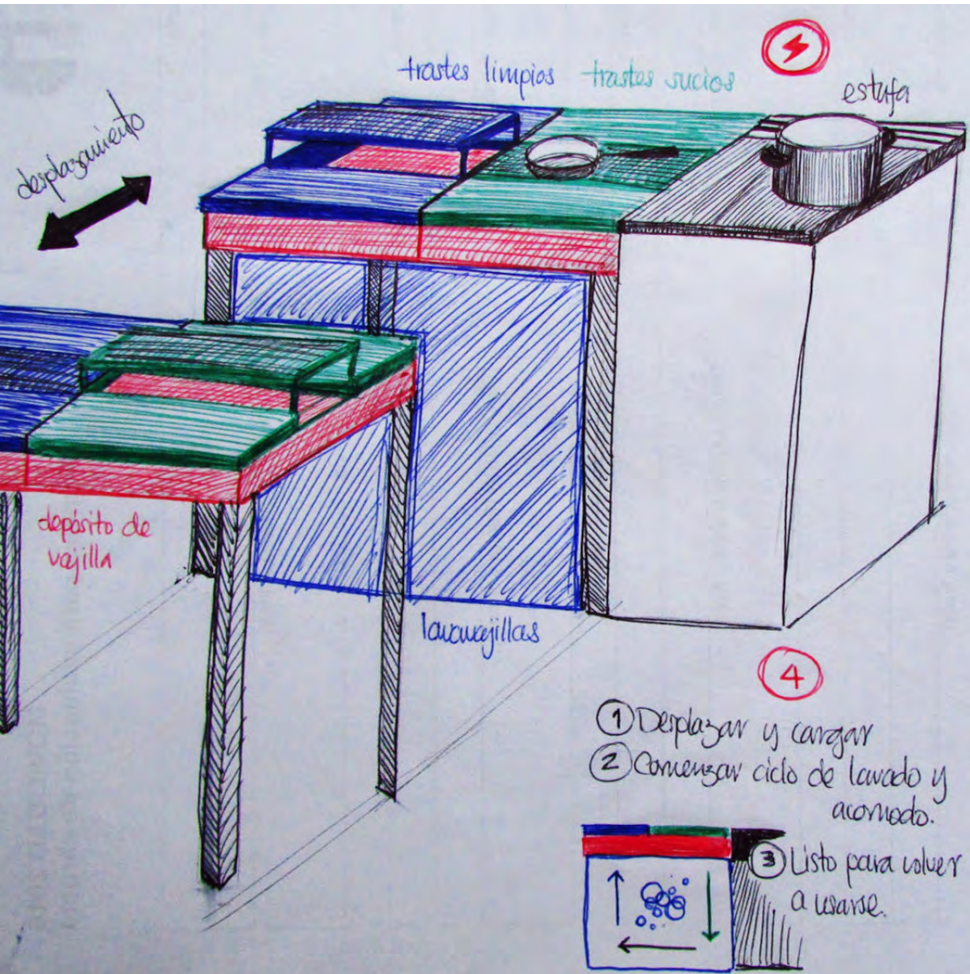 trastes limpios
trastes sucios
estufa
desplazamiento
depósito de
vajilla
lavavajillas
4
1 Desplazar y cargar
2 Comenzar ciclo de lavado y
acomodo.
3 Listo para volver
a usarse.